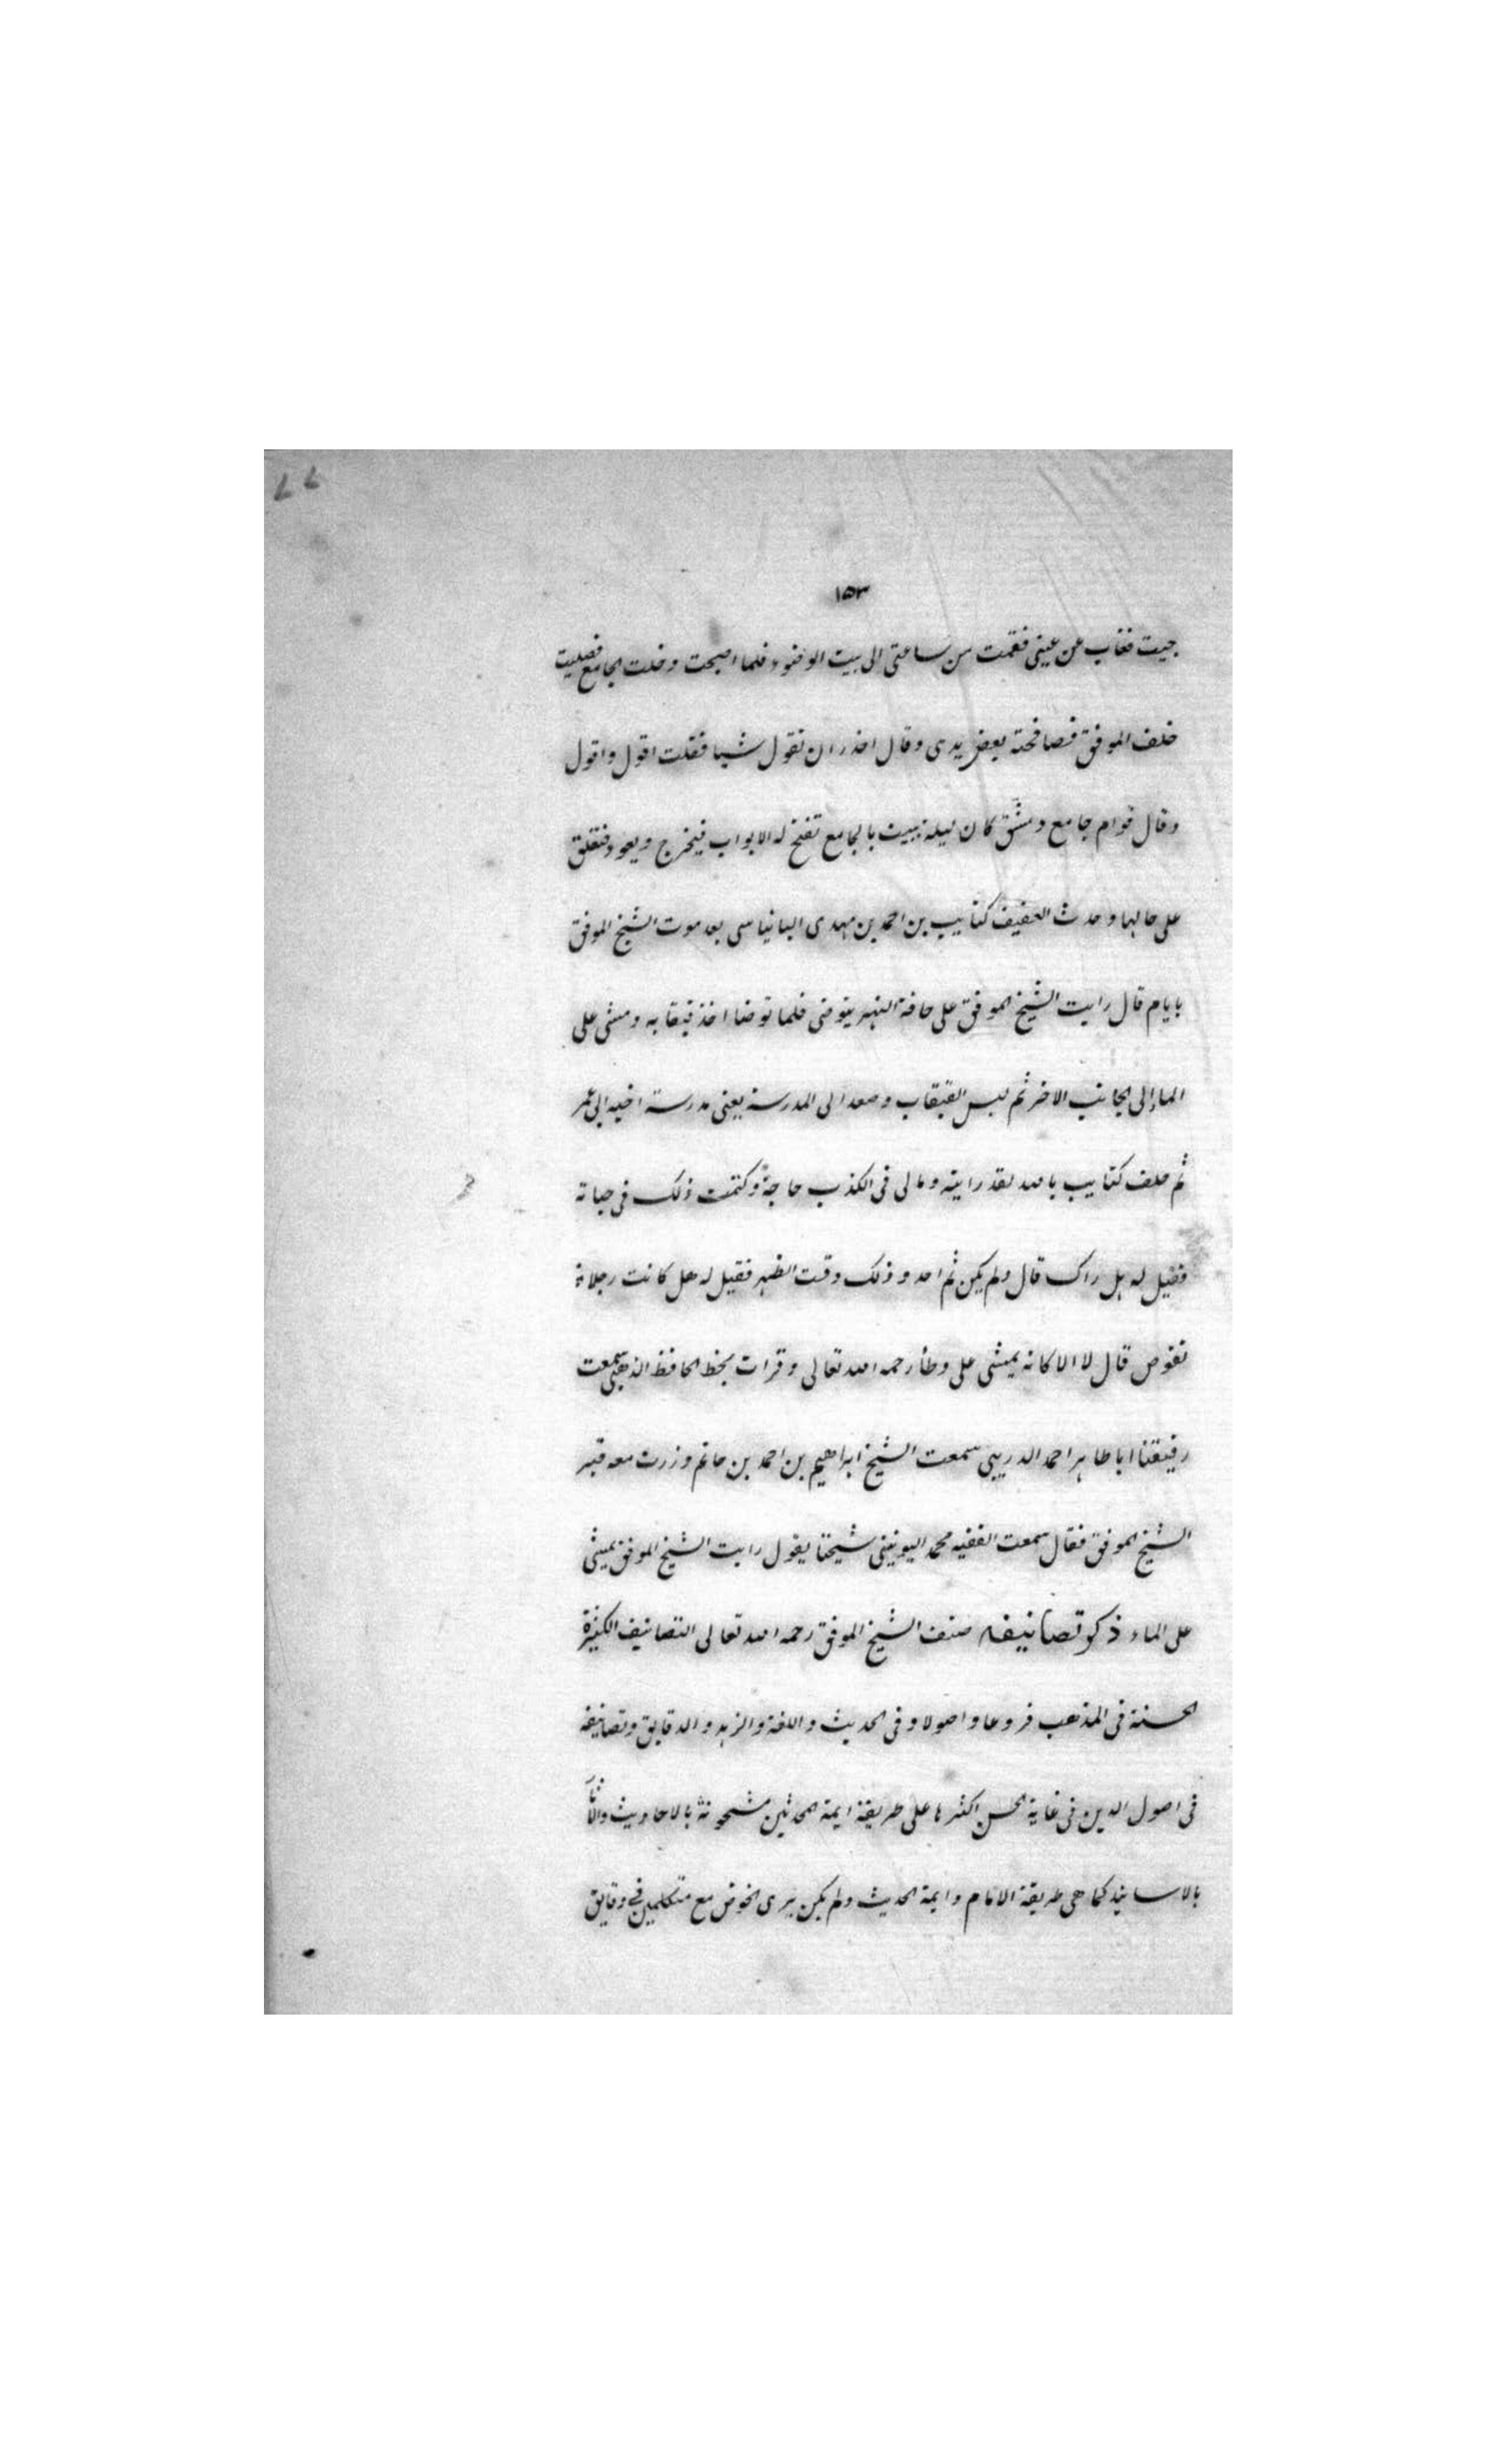 ٧٧
١٥٣
جيت فغاب عن عينى فقمت من ساعتى الى بيت الوضوء فلما اصبحت دخلت الجامع فصليت
خلف الموفق فصافحته بعض يدى وقال احذر ان تقول شيا فقلت اقول واقول
وقال قوام جامع دمشق كان ليلة يبيت بالجامع تفتح له الابواب فيخرج ويعود فتغلق
على حالها وحدث العفيف كتايب بن احمد بن مهدى البانياسى بعد موت الشيخ الموفق
بايام قال رايت الشيخ الموفق على حافة النهر يتوضى فلما توضا اخذ قبقابه ومشى على
الماء الى الجانب الاخر ثم لبس القبقاب وصعد الى المدرسة يعنى مدرسة اخيه ابى عمر
ثم حلف كتايب بالله لقد رايته ومالى فى الكذب حاجة وكتمت ذلك فى حياته
فقيل له هل راك قال ولم يكن ثم احد وذلك وقت الظهر فقيل له هل كانت رجلاه
تغوص قال لا الا كانه يمشى على وطأ رحمه الله تعالى وقرات بخط الحافظ الذهبى سمعت
رفيقنا ابا طاهر احمد الدريبى سمعت الشيخ ابراهيم بن احمد بن حاتم وزرت معه قبر
الشيخ الموفق فقال سمعت الفقيه محمد اليونينى شيخنا يقول رايت الشيخ الموفق يمشى
على الماء ذكر تصانيفه صنف الشيخ الموفق رحمه الله تعالى التصانيف الكثيرة
الحسنة فى المذهب فروعا واصولا وفى الحديث واللغة والزهد والدقايق وتصانيفه
فى اصول الدين فى غاية الحسن اكثرها على طريقة ايمة المحدثين مشحونة بالاحاديث والاثار
بالاسانيد كما هى طريقة الامام وايمة الحديث ولم يكن يرى الخوض مع متكلمين فى دقايق